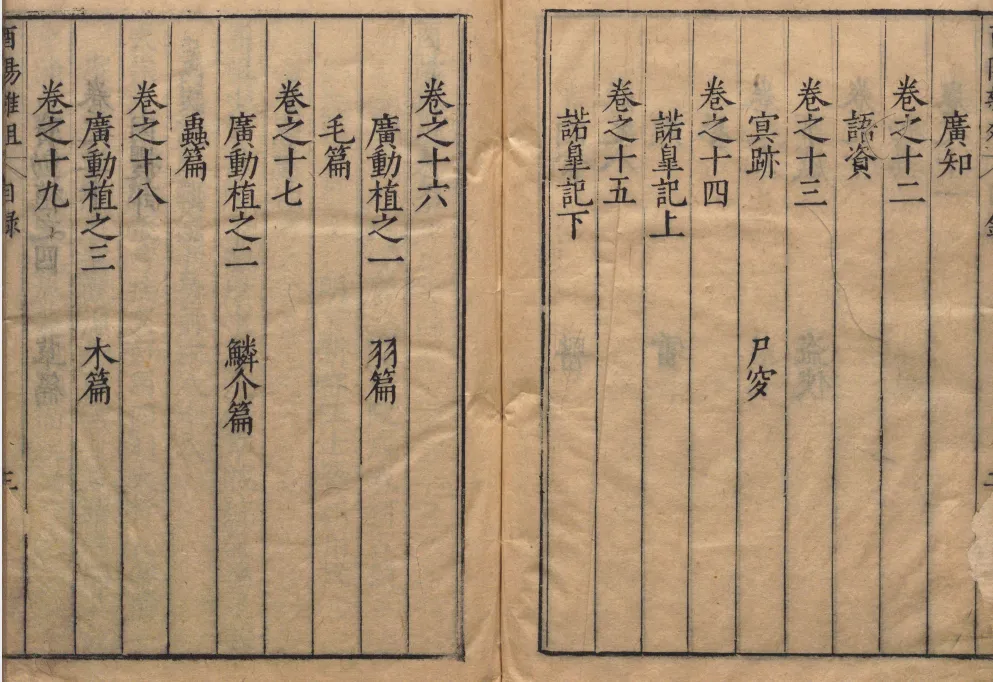 廣知
卷之十二
語資
卷之十三
㝠跡 尸穸
卷之十四
諾臯記上
卷之十五
諾臯記下
卷之十六
廣動植之一 羽篇
毛篇
卷之十七
廣動植之二 鱗介篇
蟲篇
卷之十八
廣動植之三 木篇
卷之十九
酉陽雜俎 目録 三